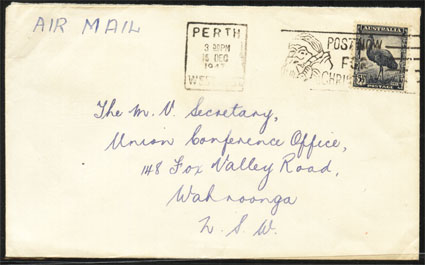 AIR MAIL
PERTH
3 30PM
15 DEC
194
POST NOW
FOR
CHRISTMAS
AUSTRALIA
POSTAGE
The M. V. Secretary,
Union Conference Office,
148 Fox Valley Road,
Wahroonga
N. S. W.